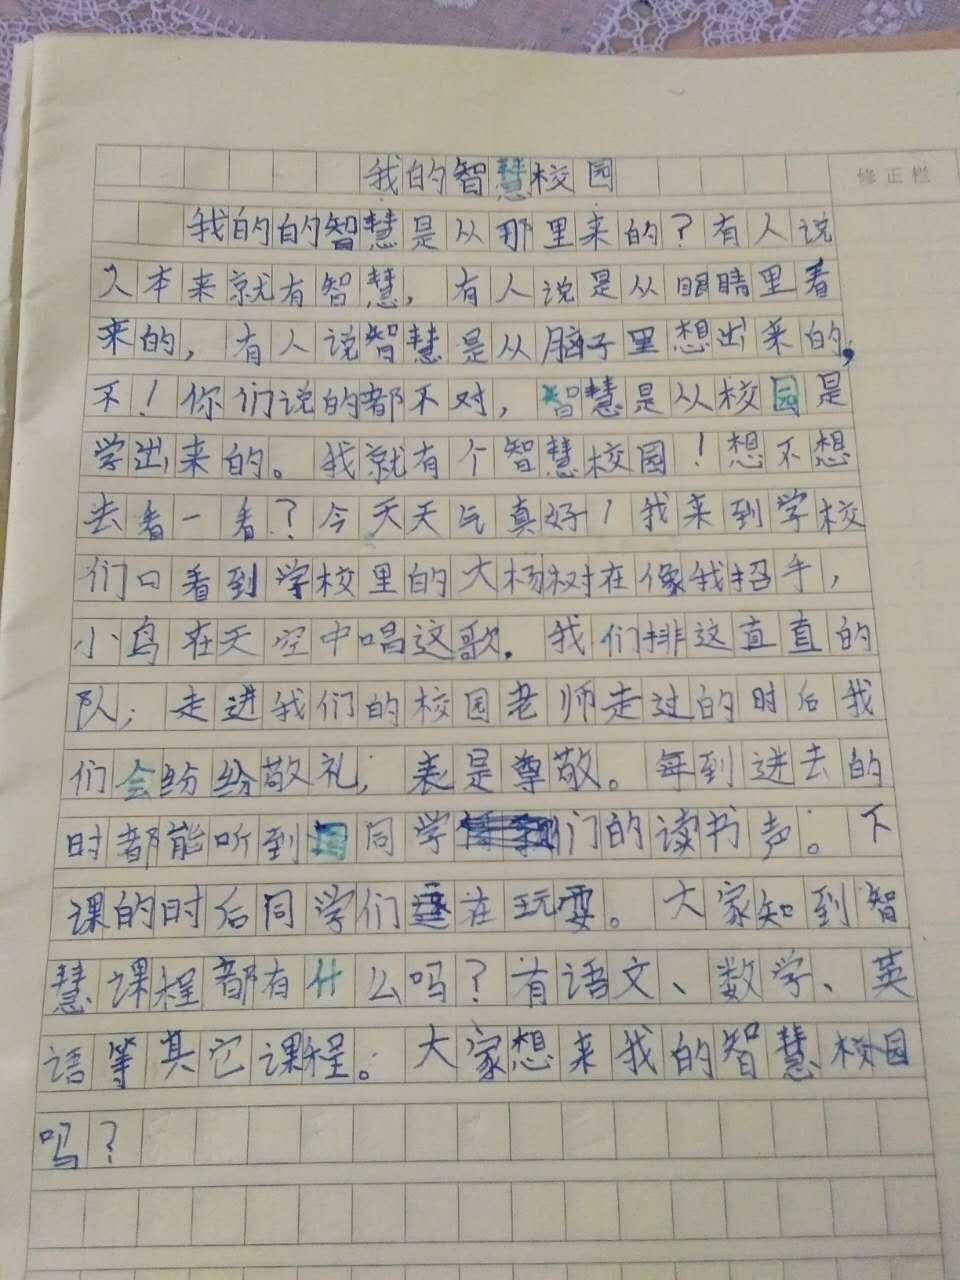 我的智慧校园
修正栏
我的的智慧是从那里来的？有人说
人本来就有智慧，有人说是从眼睛里看
来的，有人说智慧是从脑子里想出来的，
不！你们说的都不对，智慧是从校园是
学出来的。我就有个智慧校园！想不想
去看一看？今天天气真好！我来到学校
们口看到学校里的大杨树在像我招手，
小鸟在天空中唱这歌。我们排这直直的
队，走进我们的校园老师走过的时后我
们会纷纷敬礼，表是尊敬。每到进去的
时都能听到同学们的读书声。下
课的时后同学们在玩耍。大家知到智
慧课程都有什么吗？有语文、数学、英
语等其它课程。大家想来我的智慧校园
吗？